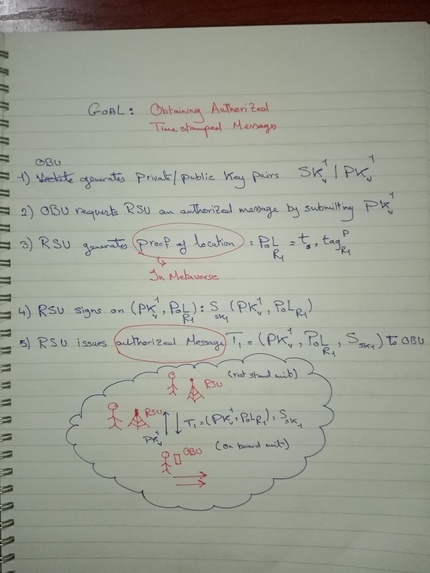 GOAL: Obtaining Authorized
Time stamped Messages
OBU
1) generates Private/public Key pairs SK_v^1 | PK_v^1
2) OBU requests RSU an authorized message by submitting PK_v^1
3) RSU generates proof of location = PoL_R1 = t_s, tag_R1^P
In Metaverse
4) RSU signs on (PK_v^1, PoL_R1): S_SK1 (PK_v^1, PoL_R1)
5) RSU issues authorized Message T1 = (PK_v^1, PoL_R1, S_SK1) to OBU
RSU
RSU T1=(PK_v^1, PoL_R1), S_SK1
PK_v^1
OBU (on board unit)